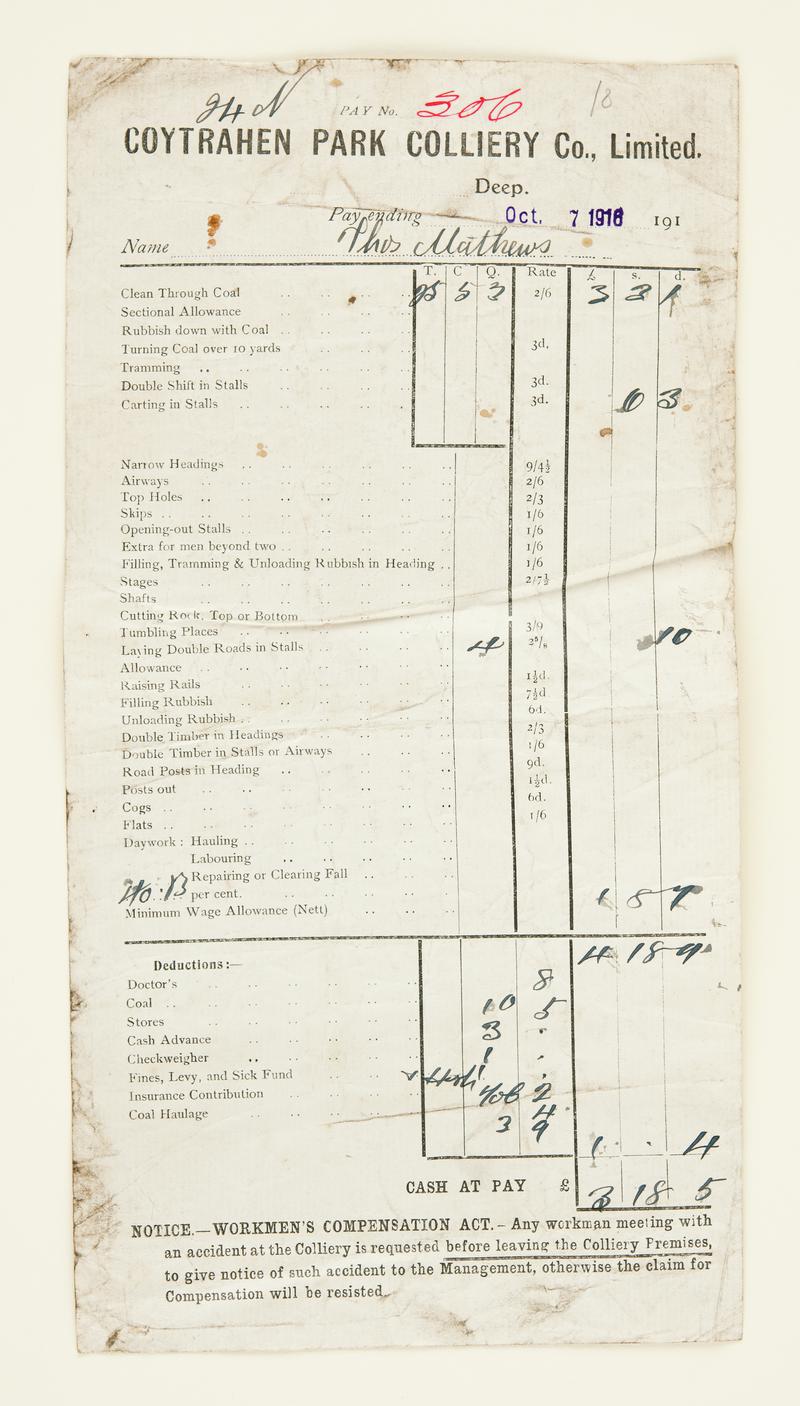 PAY No. 306 18
COYTRAHEN PARK COLLIERY Co., Limited.
Deep.
Pay ending Oct. 7 1916 191
Name Thos Mathews
T. C Q. Rate £ s. d.
Clean Through Coal 25 5 3 2/6 3 3 1
Sectional Allowance
Rubbish down with Coal
Turning Coal over 10 yards 3d.
Tramming
Double Shift in Stalls 3d.
Carting in Stalls 3d. 10 3
Narrow Headings 9/4½
Airways 2/6
Top Holes 2/3
Skips 1/6
Opening-out Stalls 1/6
Extra for men beyond two 1/6
Filling, Tramming & Unloading Rubbish in Heading 1/6
Stages 2/7½
Shafts
Cutting Rock, Top or Bottom
Tumbling Places 3/9
Laying Double Roads in Stalls 4 2⁵/₈ 10
Allowance
Raising Rails 1½d.
Filling Rubbish 7½d
Unloading Rubbish 6d.
Double Timber in Headings 2/3
Double Timber in Stalls or Airways 1/6
Road Posts in Heading 9d.
Posts out 1½d.
Cogs 6d.
Flats 1/6
Daywork : Hauling
Labouring
Repairing or Clearing Fall
per cent. 1 5 7
Minimum Wage Allowance (Nett)
4 18 9
Deductions :—
Doctor's 8
Coal 10 5
Stores 3
Cash Advance
Checkweigher 1
Fines, Levy, and Sick Fund
Insurance Contribution 2
Coal Haulage 3 9
1 . 4
CASH AT PAY £ 3 18 5
NOTICE.—WORKMEN'S COMPENSATION ACT.- Any workman meeting with
an accident at the Colliery is requested before leaving the Colliery Premises,
to give notice of such accident to the Management, otherwise the claim for
Compensation will be resisted.